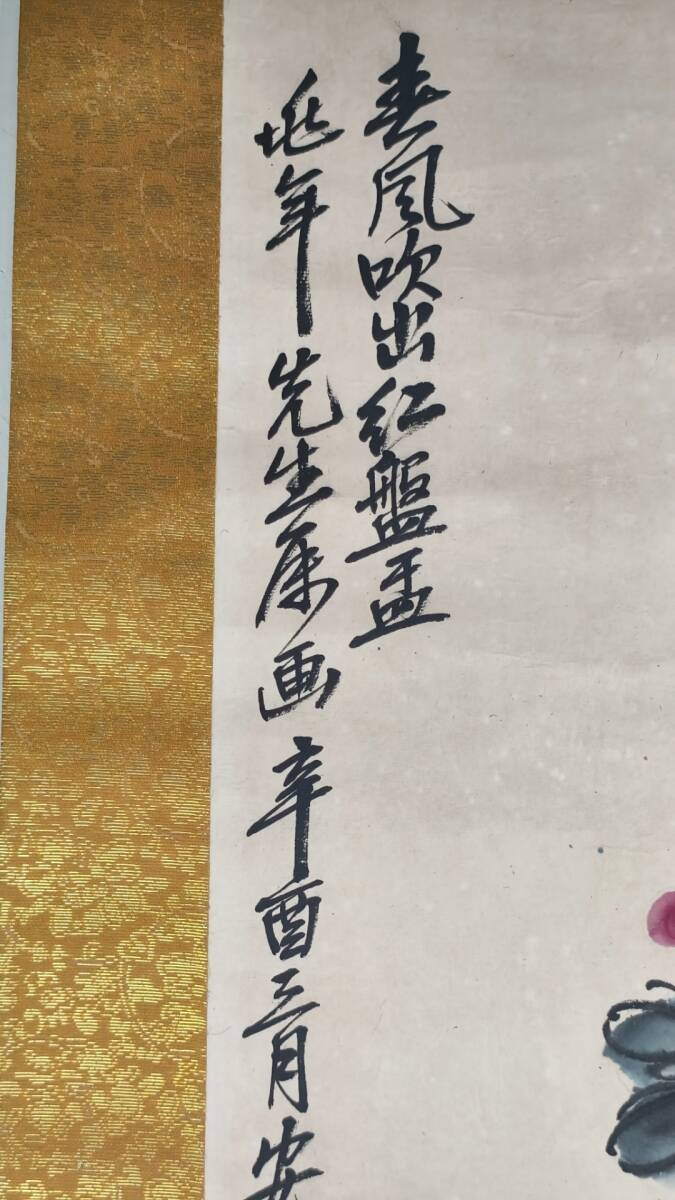 春風吹出红盤盂
兆年先生属画辛酉三月安